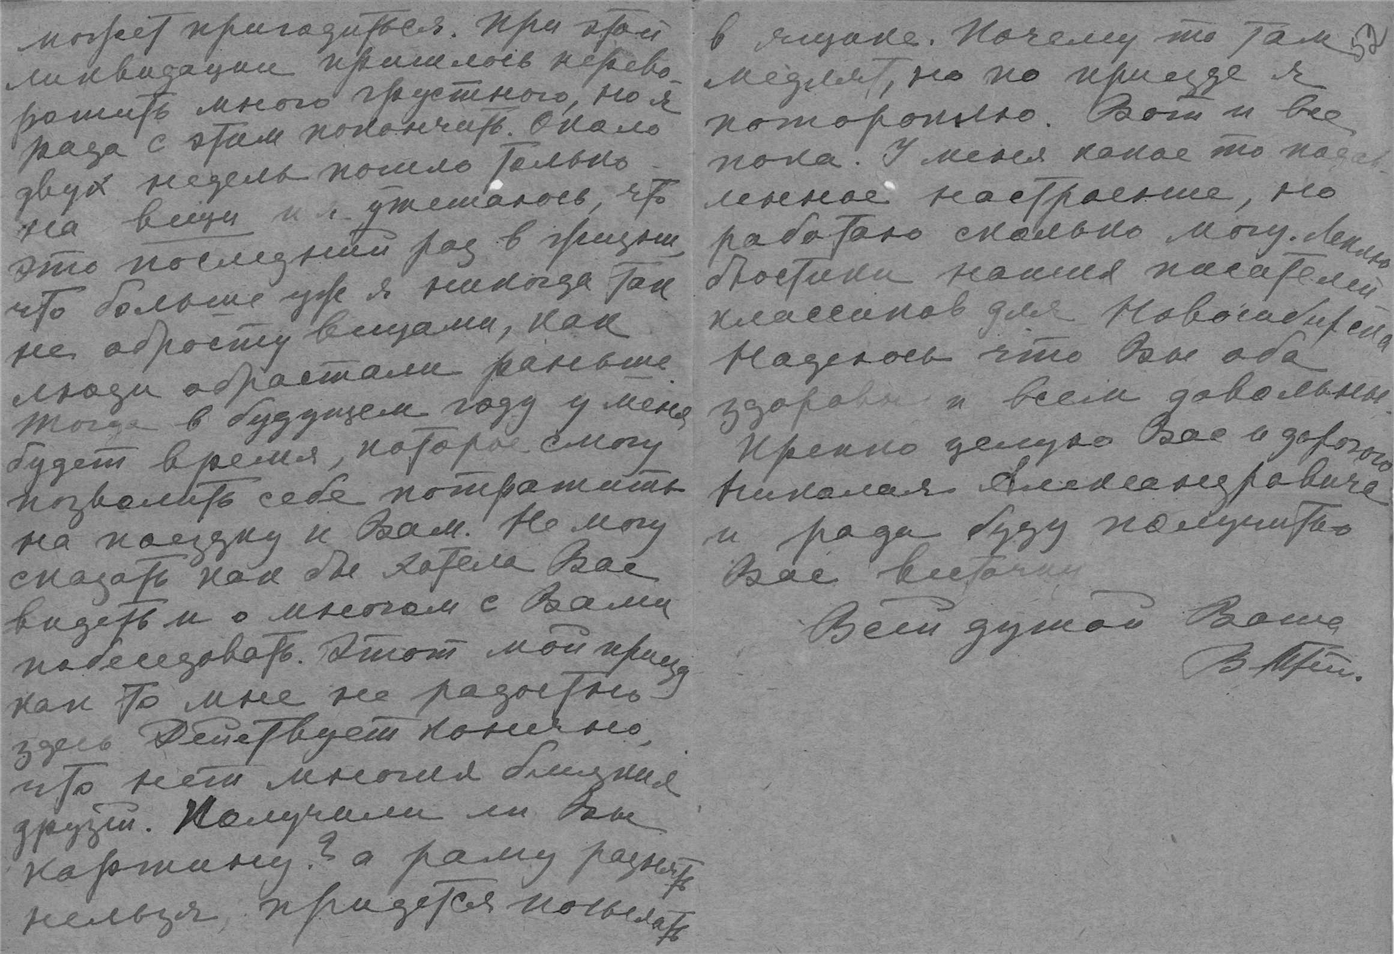 может пригодиться. При этой
ликвидации пришлось перево-
рошить много грустного, но я
рада с этим покончить. Около
двух недель пошло только
на вещи и я утешаюсь, что
это последний раз в жизни,
что больше уж я никогда так
не обросту вещами, как
люди обрастали раньше
Тогда в будущем году у меня
будет время, которое смогу
позволить себе потратить
на поездку к Вам. Не могу
сказать как бы хотела Вас
видеть и о многом с Вами
побеседовать. Этот мой приезд
как то мне не радостно
здесь Действует конечно,
что нет многих близких
друзей. Получили ли Вы
картину? а раму разнять
нельзя, придется посылать
52
в ящике. Почему то там
медлят, но по приезде я
потороплю. Вот и все
пока. У меня какое то подав-
ленное настроение, но
работаю сколько могу. Леплю
бюстики наших писателей-
классиков для Новосибирска
Надеюсь что Вы оба
здоровы и всем довольны
Крепко целую Вас и дорогого
Николая Александровича
и рада буду получить о
Вас весточку
Всей душой Ваша